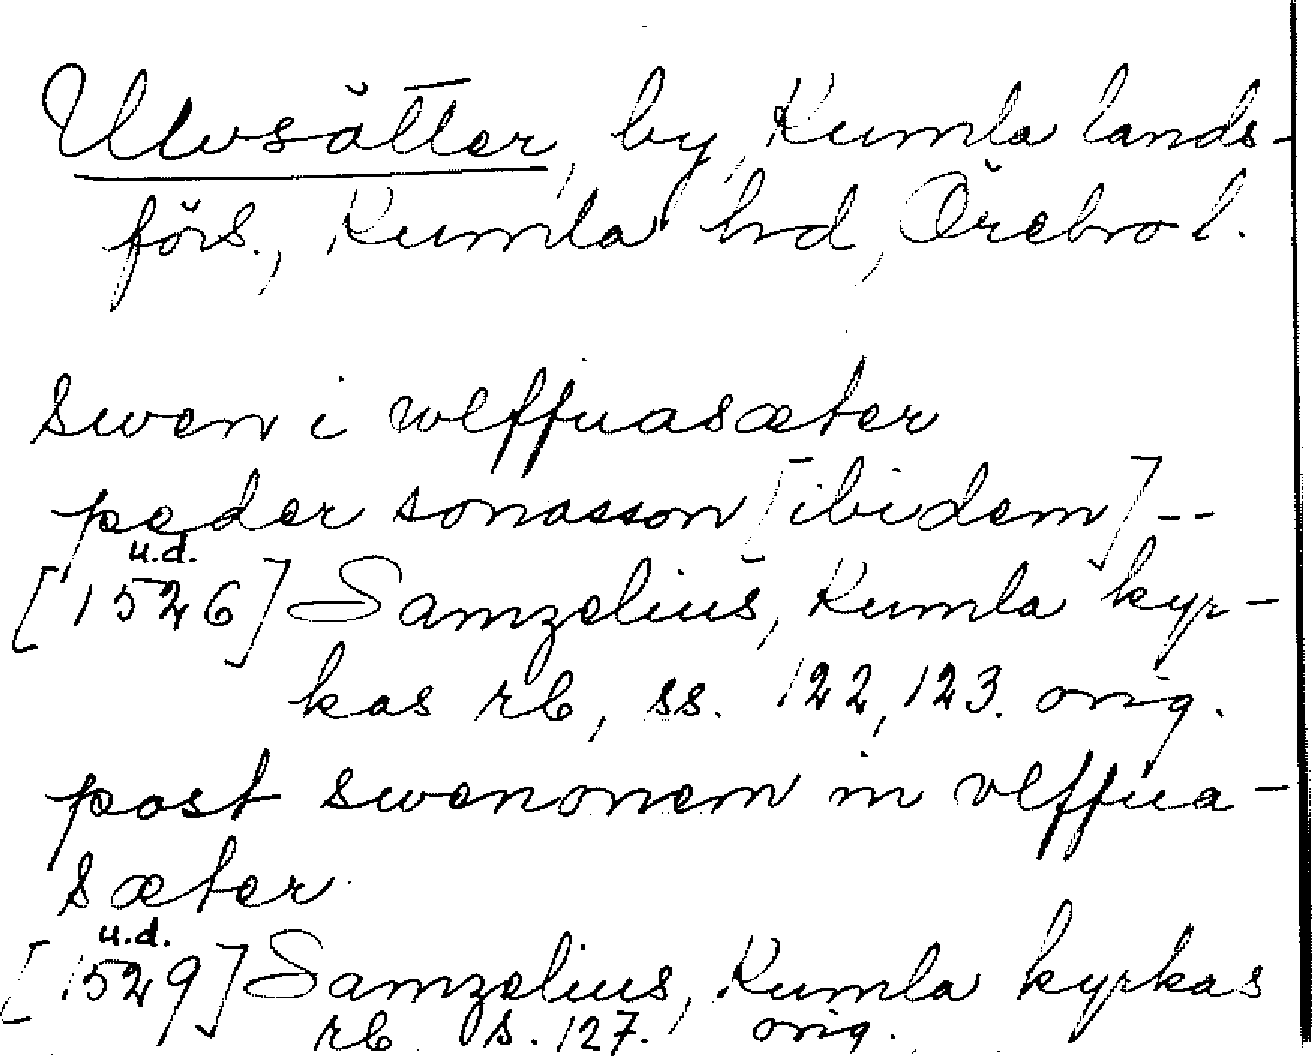 Ulvsätter, by, Kumla lands-
förs., Kumla hd, Örebro l.
swen i wlffuasæter
peder sonasson [ibidem] --
u.d.
[1526] Samzelius, Kumla kyr-
kas rb, ss. 122, 123. orig.
post swenonem in vlffua-
sæter
u.d.
[1529] Samzelius, Kumla kyrkas
rb s. 127. orig.